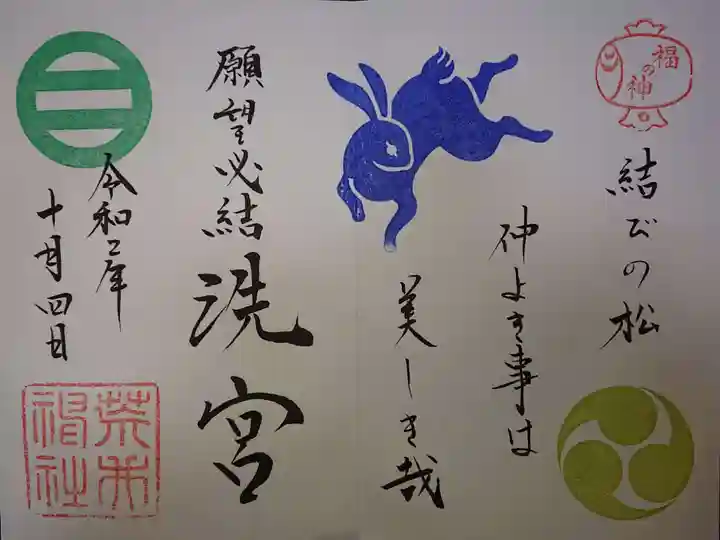 福の神
結びの松
仲よき事は
美しき哉
願望必結
洗宮
令和二年
十月四日